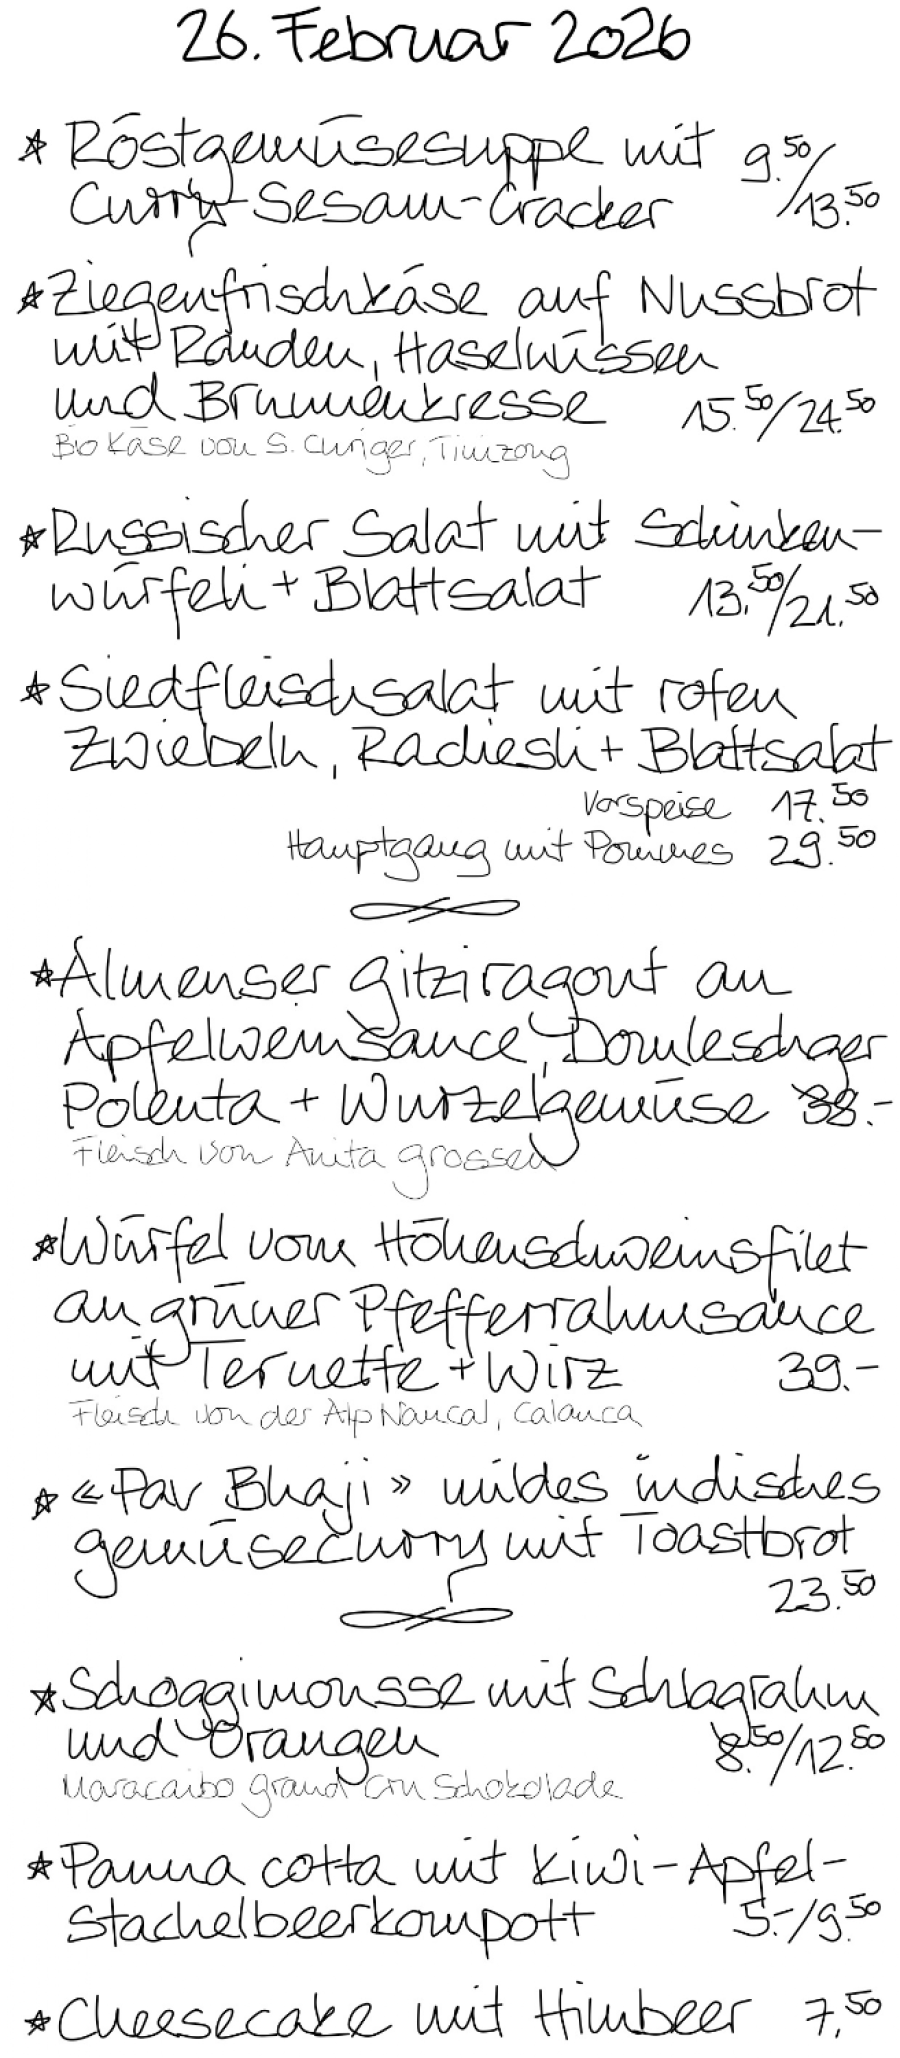 26. Februar 2026
* Röstgemüsesuppe mit 9.50/
Curry-Sesam-Cracker 13.50
* Ziegenfrischkäse auf Nussbrot
mit Randen, Haselnüssen
und Brunnenkresse 15.50/24.50
Bio Käse von S. Curiger, Tinizong
* Russischer Salat mit Schinken-
würfeli + Blattsalat 13.50/21.50
* Siedfleischsalat mit roten
Zwiebeln, Radiesli + Blattsalat
Vorspeise 17.50
Hauptgang mit Pommes 29.50
* Almenser Gitziragout an
Apfelweinsauce, Domleschger
Polenta + Wurzelgemüse 38.-
Fleisch von Anita Grossen
* Würfel vom Höhenschweinsfilet
an grüner Pfefferrahmsauce
mit Ternette + Wirz 39.-
Fleisch von der Alp Naucal, Calanca
* «Pav Bhaji» mildes indisches
Gemüsecurry mit Toastbrot
23.50
* Schoggimousse mit Schlagrahm
und Orangen 8.50/12.50
Maracaibo Grand Cru Schokolade
* Panna cotta mit Kiwi-Apfel-
Stachelbeerkompott 5.-/9.50
* Cheesecake mit Himbeer 7.50